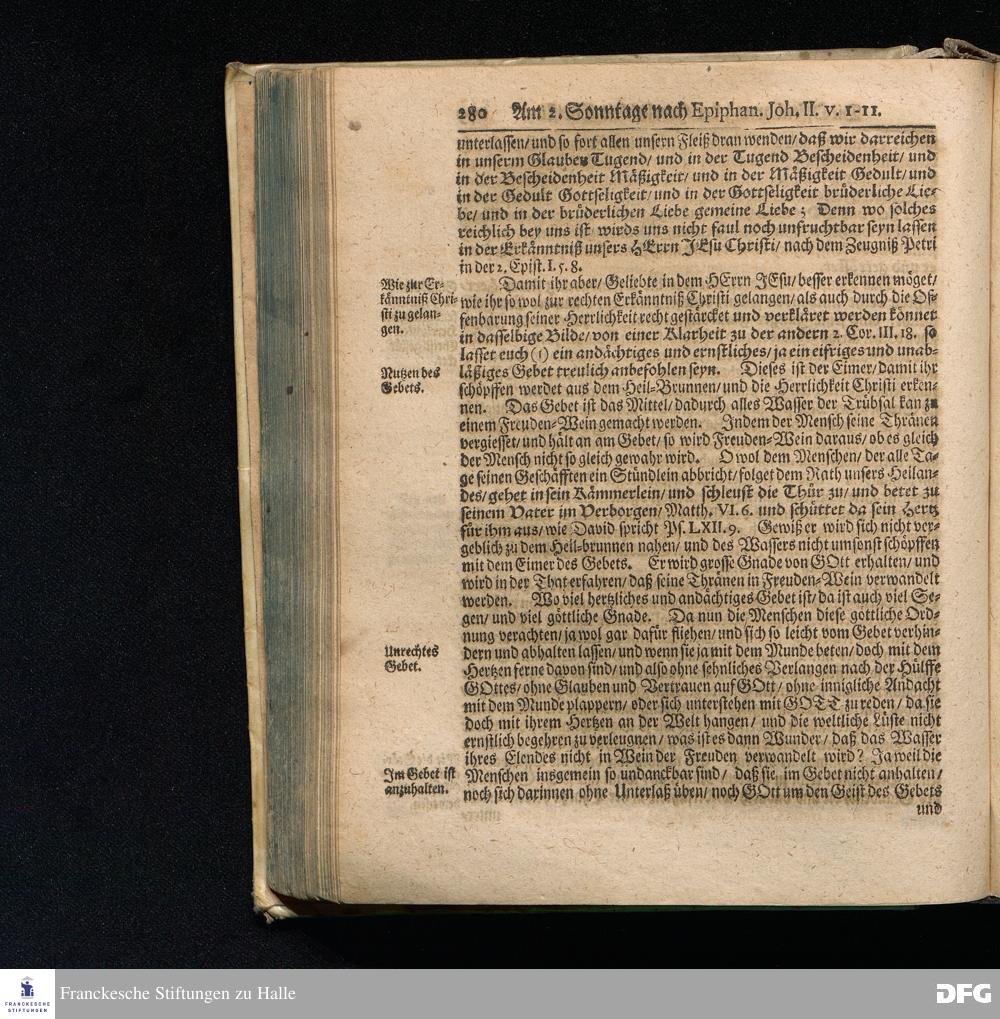 280 Am 2. Sonntage nach Epiphan. Joh. II. v. 1-11.
unterlassen/ und so fort allen unsern Fleiß dran wenden/ daß wir darreichen
in unserm Glauben Tugend/ und in der Tugend Bescheidenheit/ und
in der Bescheidenheit Mäßigkeit/ und in der Mäßigkeit Gedult/ und
in der Gedult Gottseligkeit/ und in der Gottseligkeit brüderliche Lie-
be/ und in der brüderlichen Liebe gemeine Liebe; Denn wo solches
reichlich bey uns ist/ wirds uns nicht faul noch unfruchtbar seyn lassen
in der Erkänntniß unsers HErrn JEsu Christi/ nach dem Zeugniß Petri
in der 2. Epist. I. 5. 8.
Wie zur Er-
känntniß Chri-
sti zu gelan-
gen.
Damit ihr aber/ Geliebte in dem HErrn JEsu/ besser erkennen möget/
wie ihr so wol zur rechten Erkänntniß Christi gelangen/ als auch durch die Of-
fenbarung seiner Herrlichkeit recht gestärcket und verkläret werden könnet
in dasselbige Bilde/ von einer Klarheit zu der andern 2. Cor. III. 18. so
lasset euch (1) ein andächtiges und ernstliches/ ja ein eifriges und unab-
Nutzen des
Gebets.
läßiges Gebet treulich anbefohlen seyn. Dieses ist der Eimer/ damit ihr
schöpffen werdet aus dem Heil-Brunnen/ und die Herrlichkeit Christi erken-
nen. Das Gebet ist das Mittel/ dadurch alles Wasser der Trübsal kan zu
einem Freuden-Wein gemacht werden. Indem der Mensch seine Thränen
vergiesset/ und hält an am Gebet/ so wird Freuden-Wein daraus/ ob es gleich
der Mensch nicht so gleich gewahr wird. O wol dem Menschen/ der alle Ta-
ge seinen Geschäfften ein Stündlein abbricht/ folget dem Rath unsers Heilan-
des/ gehet in sein Kämmerlein/ und schleust die Thür zu/ und betet zu
seinem Vater im Verborgen/ Matth. VI. 6. und schüttet da sein Hertz
für ihm aus/ wie David spricht Ps. LXII. 9. Gewiß er wird sich nicht ver-
geblich zu dem Heil-brunnen nahen/ und des Wassers nicht umsonst schöpffen
mit dem Eimer des Gebets. Er wird grosse Gnade von GOtt erhalten/ und
wird in der That erfahren/ daß seine Thränen in Freuden-Wein verwandelt
werden. Wo viel hertzliches und andächtiges Gebet ist/ da ist auch viel Se-
gen/ und viel göttliche Gnade. Da nun die Menschen diese göttliche Ord-
nung verachten/ ja wol gar dafür fliehen/ und sich so leicht vom Gebet verhin-
Unrechtes
Gebet.
dern und abhalten lassen/ und wenn sie ja mit dem Munde beten/ doch mit dem
Hertzen ferne davon sind/ und also ohne sehnliches Verlangen nach der Hülffe
GOttes/ ohne Glauben und Vertrauen auf GOtt/ ohne innigliche Andacht
mit dem Munde plappern/ oder sich unterstehen mit GOTT zu reden/ da sie
doch mit ihrem Hertzen an der Welt hangen/ und die weltliche Lüste nicht
ernstlich begehren zu verleugnen/ was ist es dann Wunder/ daß das Wasser
ihres Elendes nicht in Wein der Freuden verwandelt wird? Ja weil die
Im Gebet ist
anzuhalten.
Menschen insgemein so undanckbar sind/ daß sie im Gebet nicht anhalten/
noch sich darinnen ohne Unterlaß üben/ noch GOtt um den Geist des Gebets
und
FRANCKESCHE
STIFTUNGEN
Franckesche Stiftungen zu Halle
DFG